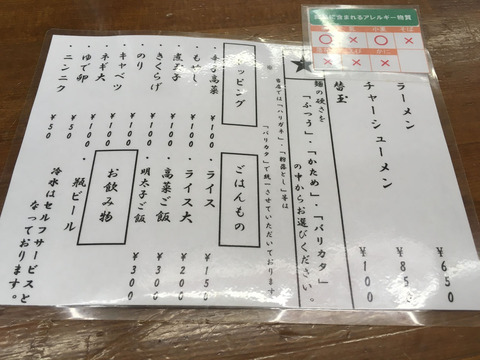 含まれるアレルギー物質
ラーメン ¥650
チャーシューメン ¥850
替玉 ¥100
麺の硬さを
「ふつう」・「かため」・「バリカタ」
の中からお選びください。
当店では「ハリガネ」・「粉落とし」等は
「バリカタ」で統一させていただいております
トッピング
・辛子高菜 ¥100
・もやし ¥100
・煮玉子 ¥100
・きくらげ ¥100
・のり ¥100
・キャベツ ¥100
・ネギ大 ¥100
・ゆで卵 ¥50
・ニンニク ¥50
ごはんもの
・ライス ¥150
・ライス大 ¥200
・高菜ご飯 ¥300
・明太子ご飯 ¥300
お飲み物
・瓶ビール
冷水はセルフサービスと
なっております。